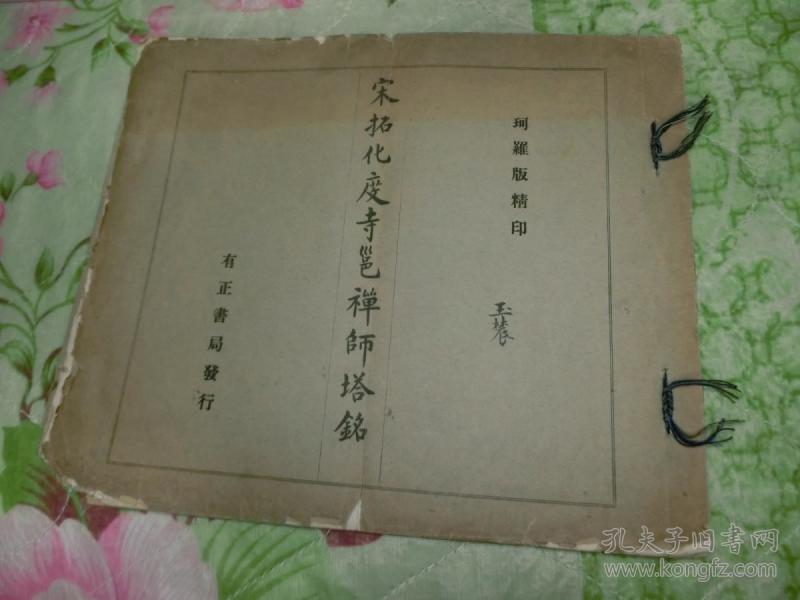 珂羅版精印
宋拓化度寺邕禪師塔銘
有正書局發行
孔夫子旧书网
www.kongfz.com